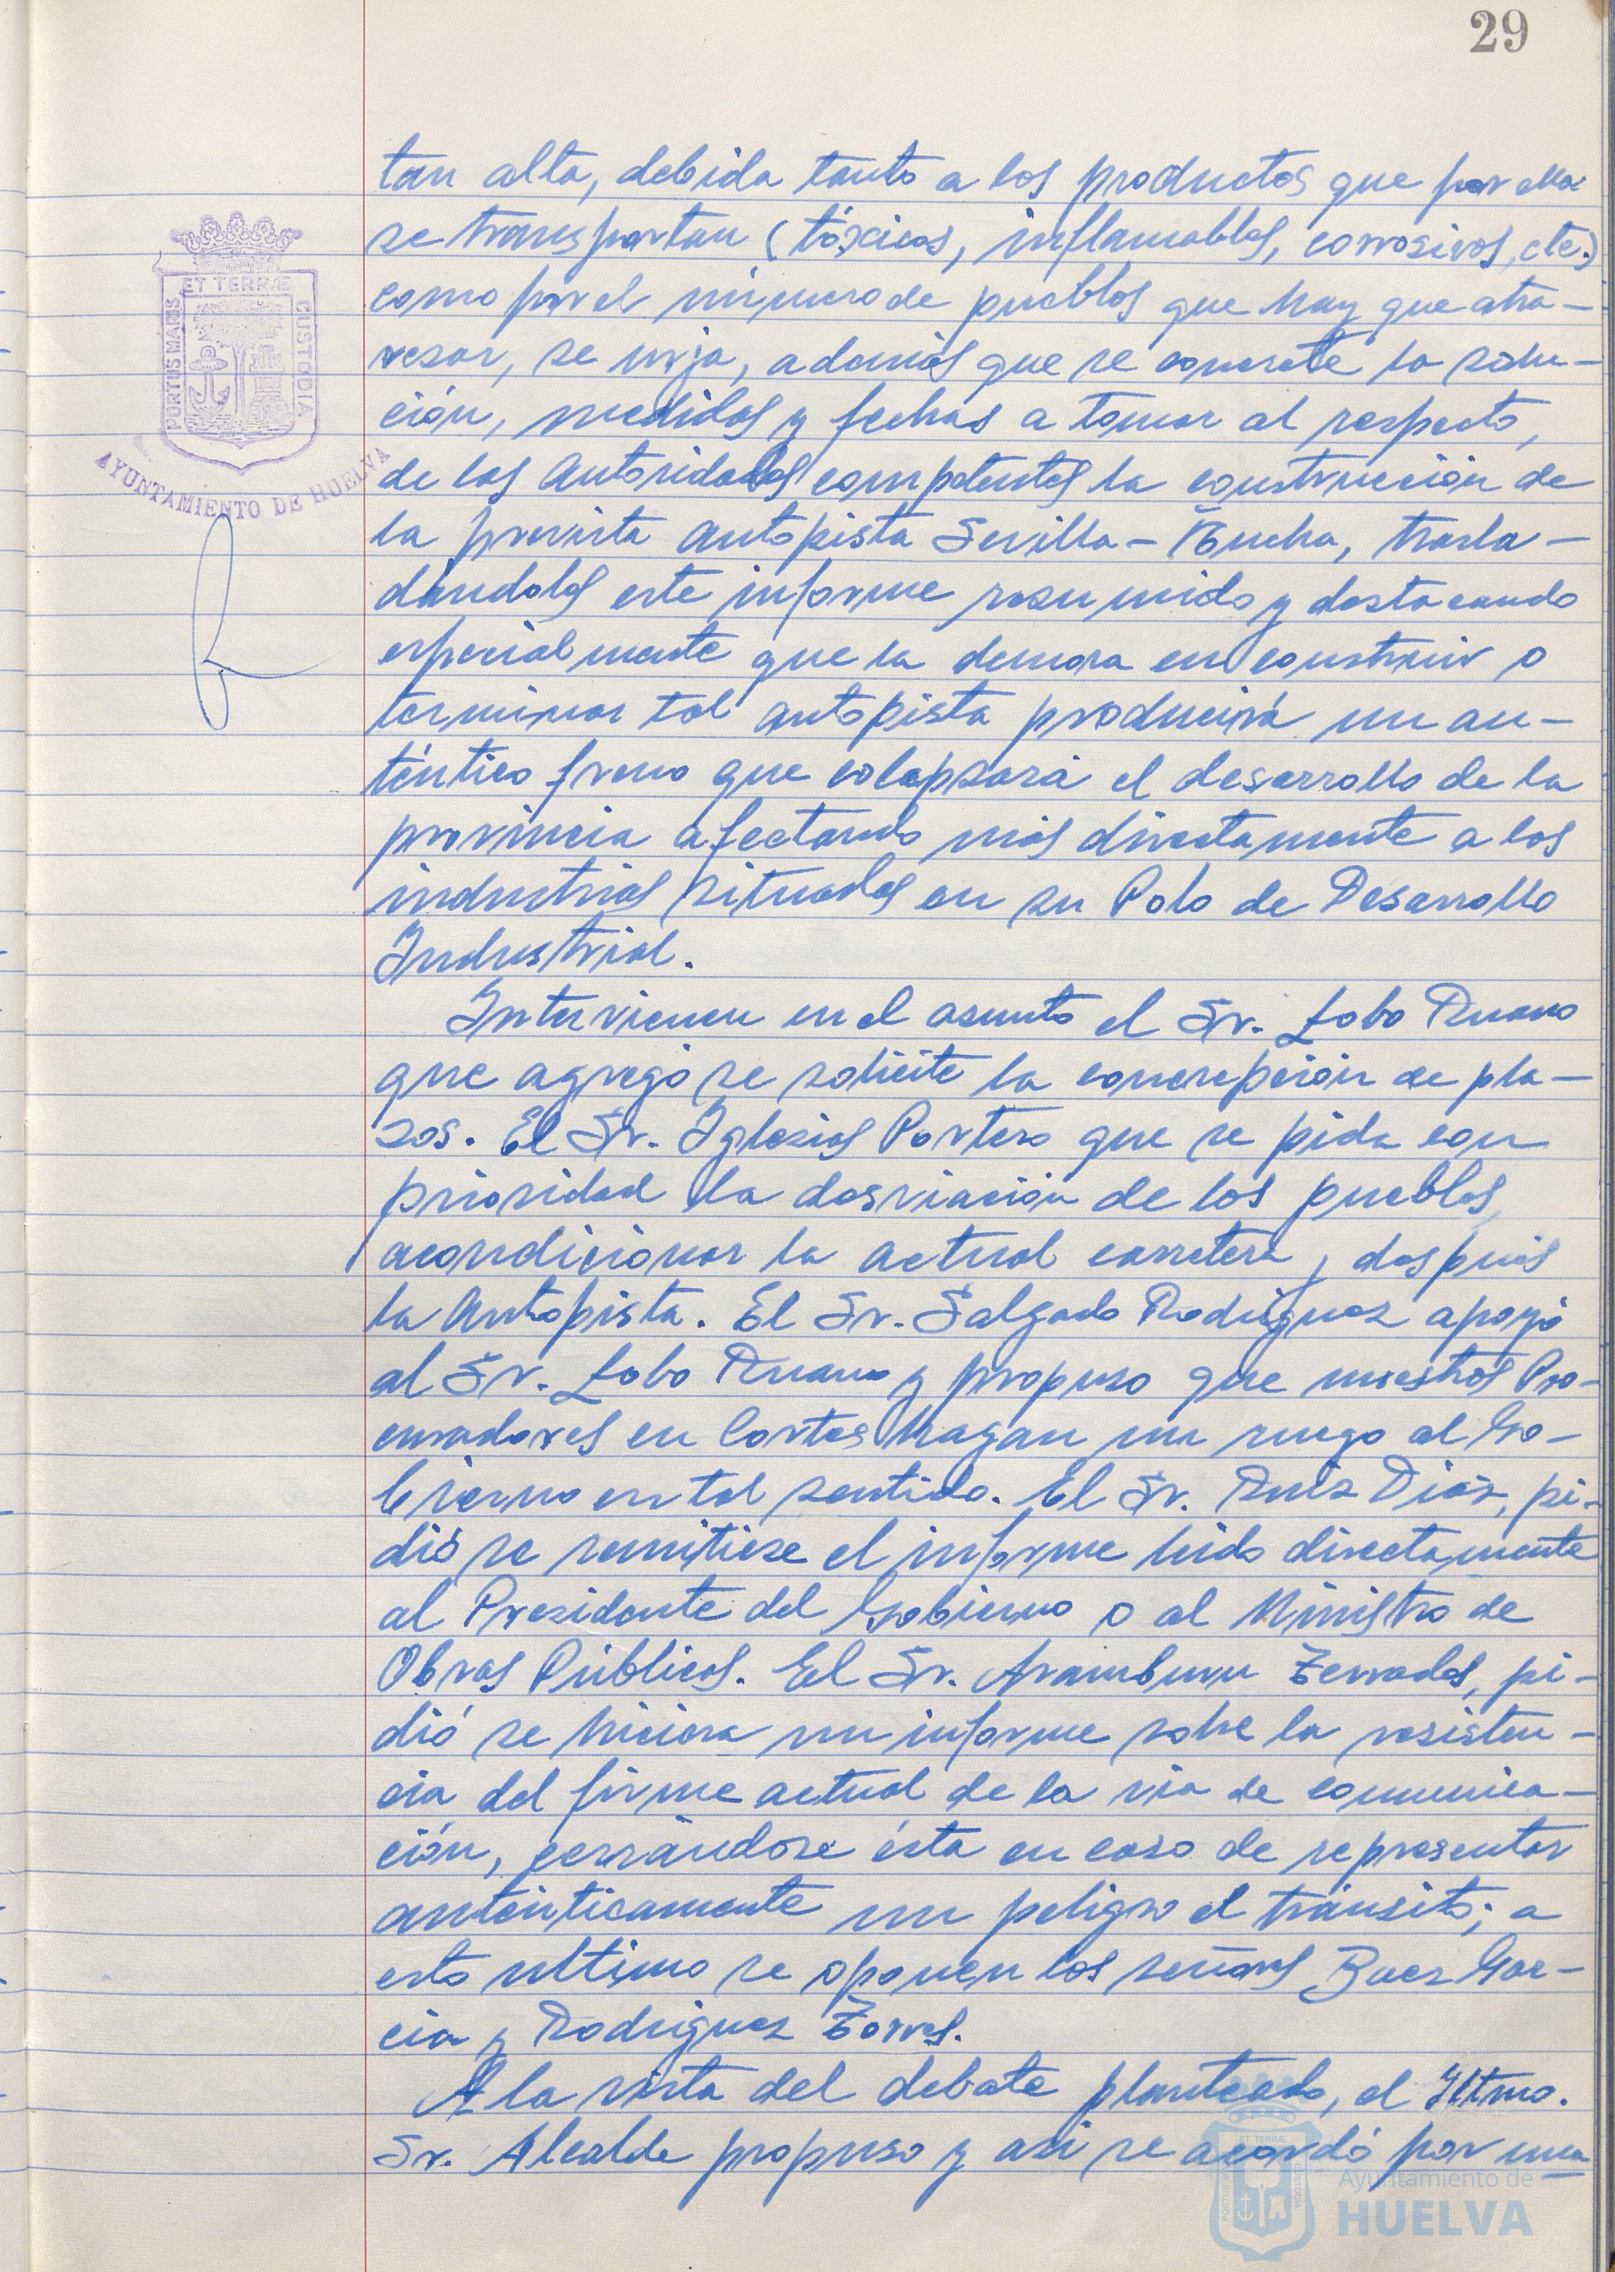 29
tan alta, debida tanto a los productos que por ella
se transportan (tóxicos, inflamables, corrosivos, etc.)
como por el número de pueblos que hay que atra-
vesar, se urja, además que se concrete la solu-
ción, medidas y fechas a tomar al respecto,
de las Autoridades competentes la construcción de
la prevista Autopista Sevilla-Huelva, trasla-
dándoles este informe resumido y destacando
especialmente que la demora en construir o
terminar tal autopista producirá un au-
téntico freno que colapsará el desarrollo de la
provincia afectando más directamente a las
industrias situadas en su Polo de Desarrollo
Industrial.
Intervienen en el asunto el Sr. Lobo Ruano
que agregó se solicite la concrepción de pla-
zos. El Sr. Iglesias Portero que se pida con
prioridad la desviación de los pueblos,
acondicionar la actual carretera y después
la Autopista. El Sr. Salgado Rodríguez apoyó
al Sr. Lobo Ruano y propuso que nuestros Pro-
curadores en Cortes hagan un ruego al Go-
bierno en tal sentido. El Sr. Ruiz Díaz, pi-
dió se remitiese el informe leido directamente
al Presidente del Gobierno o al Ministro de
Obras Públicas. El Sr. Aramburu Terrades, pi-
dió se hiciera un informe sobre la resisten-
cia del firme actual de la via de comunica-
ción, cerrándose ésta en caso de representar
auténticamente un peligro el tránsito; a
esto ultimo se oponen los señores Baez Gar-
cia y Rodriguez Torres.
A la vista del debate planteado, el Iltmo.
Sr. Alcalde propuso y asi se acordó por una
PORTUS MARIS
ET TERRÆ
CUSTODIA
AYUNTAMIENTO DE HUELVA
Ayuntamiento de
HUELVA